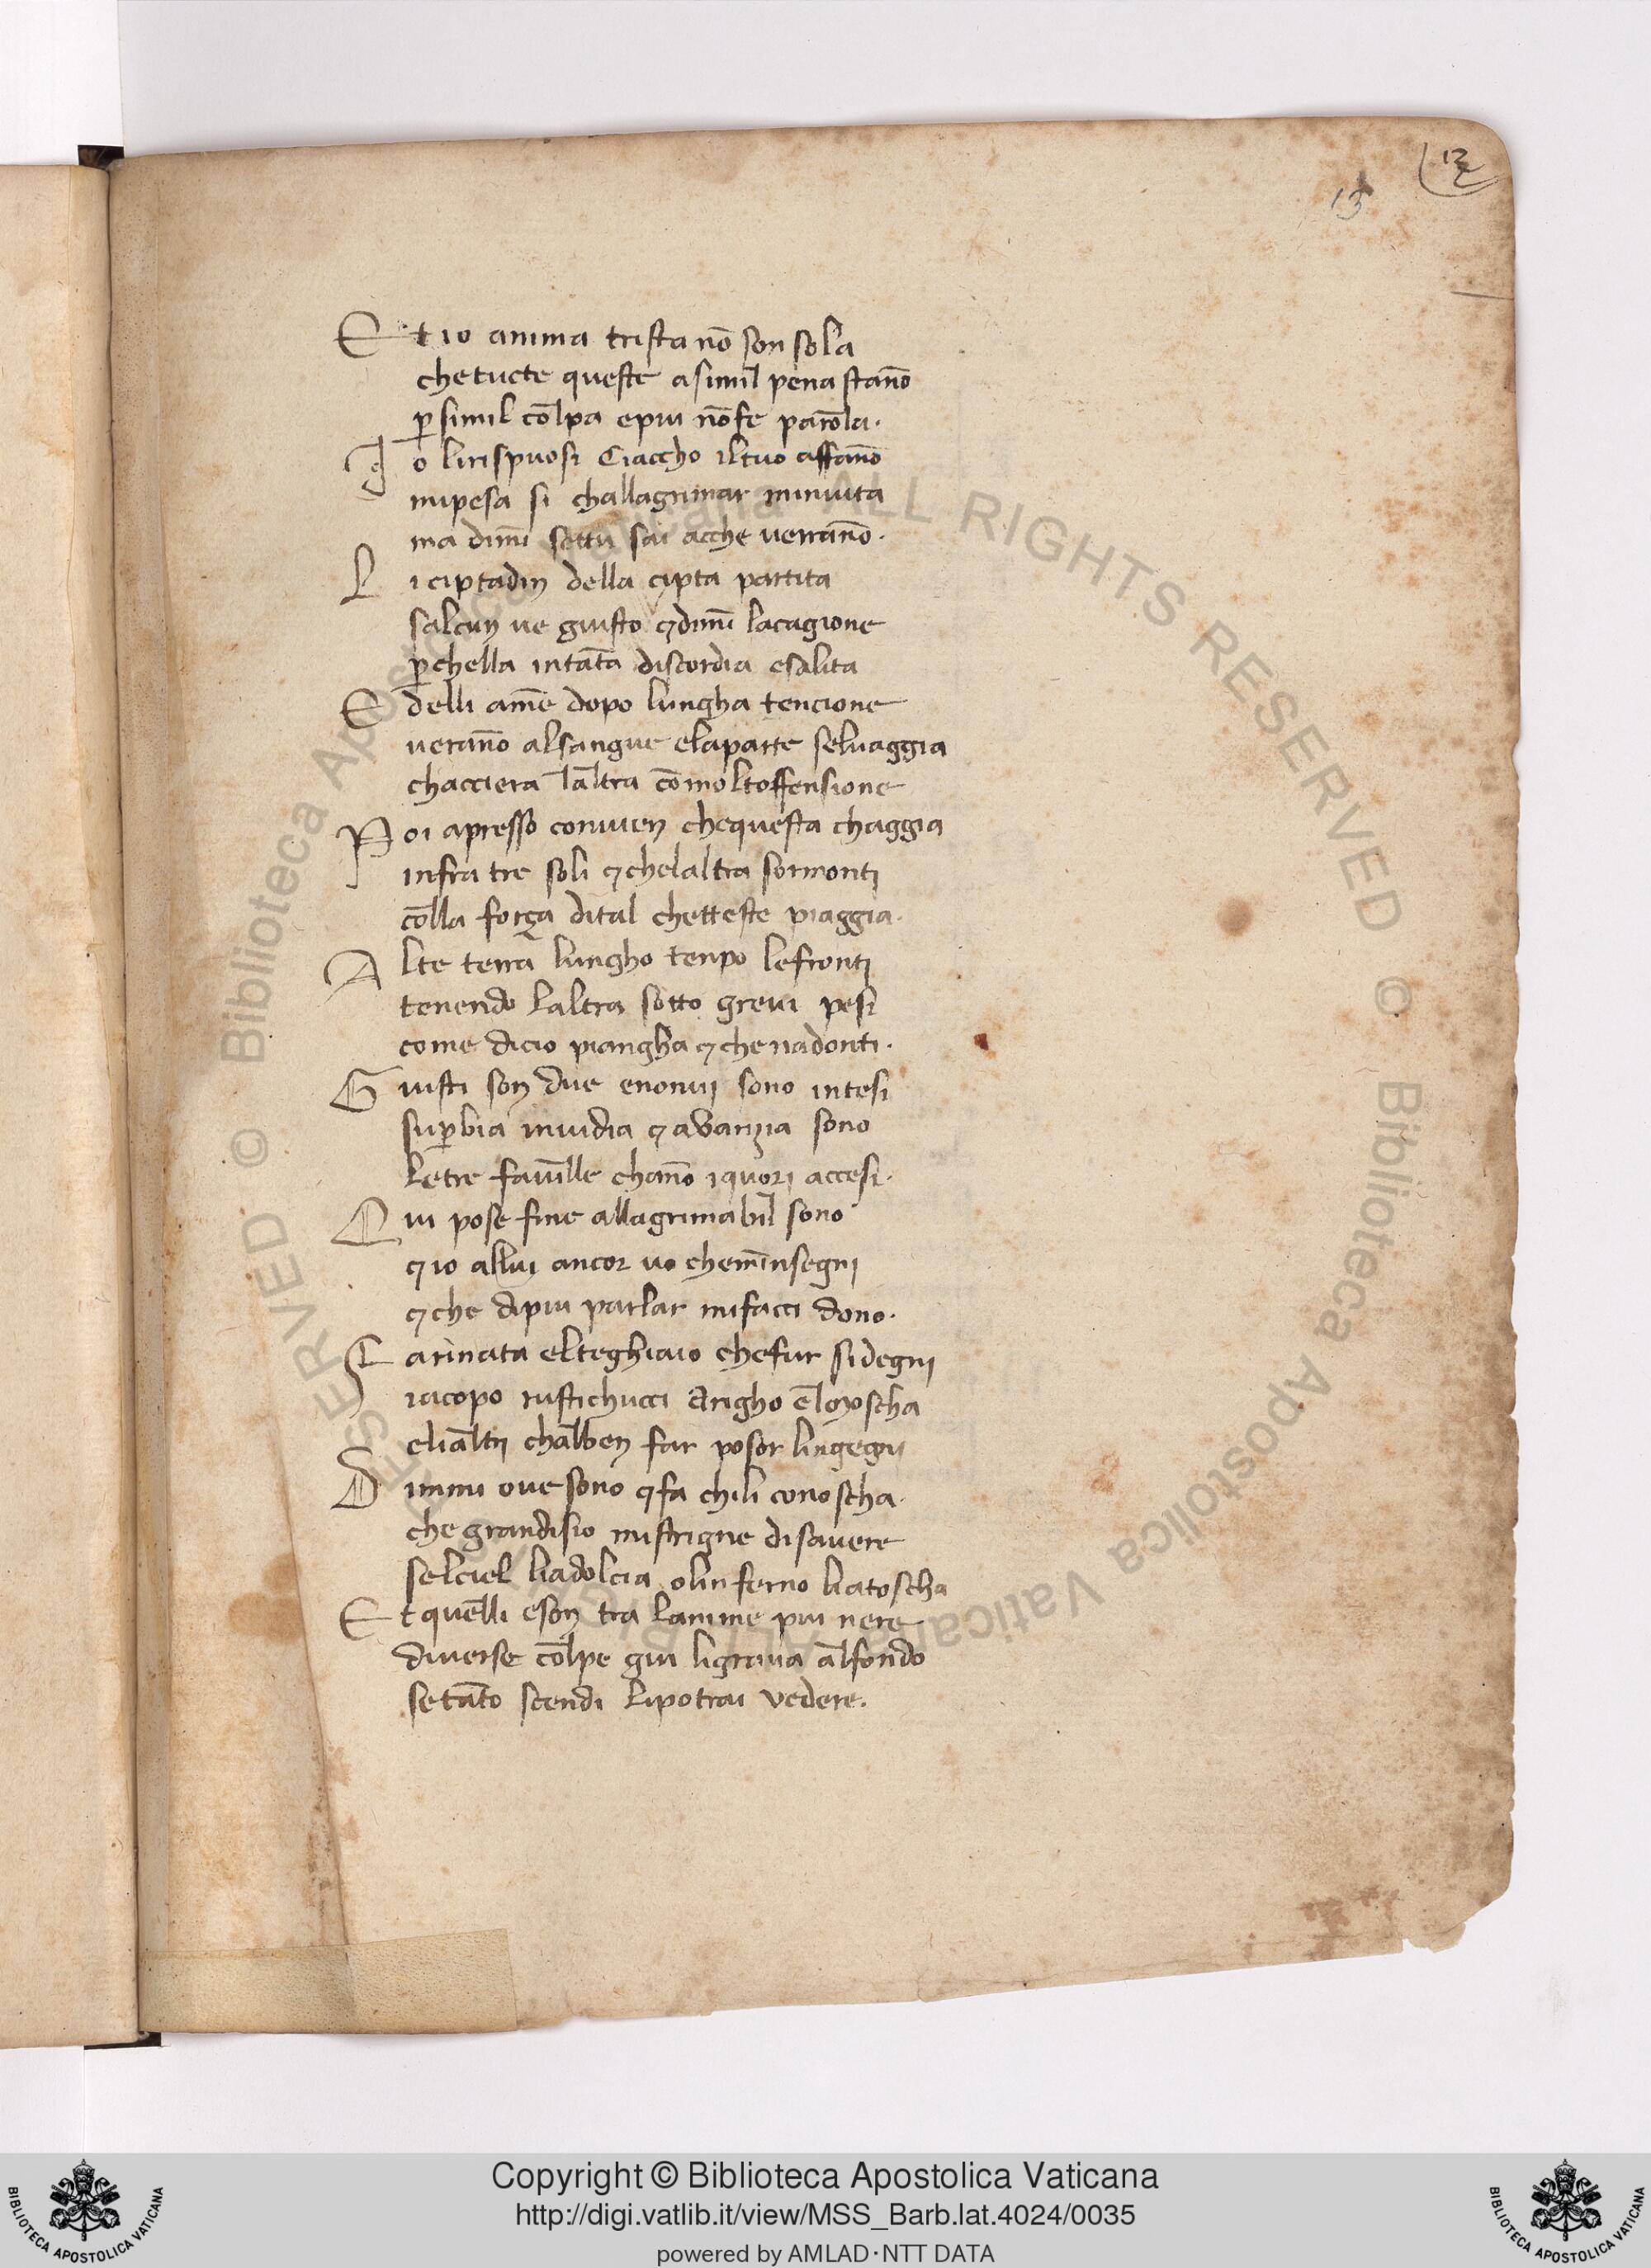 13
12
Et io anima trista nō son sola
che tucte queste a simil pena stāno
ꝑ simil colpa epiu nōfe parola.
Io lirispuosi Ciaccho iltuo affāno
mipesa si challagrimar minuita
ma dimi settu sai acche verrāno.
Li ciptadin della cipta partita
salcun ve giusto ⁊dimi lacagione
ꝑchella intāta discordia esalita
E delli ame dopo lungha tencione
verāno alsangue elaparte seluaggia
chacciera laltra cō moltoffensione
Poi apresso conuien chequesta chaggia
infra tre soli ⁊chelaltra sormonti
colla força dital chetteste piaggia.
Alte terra lungho tenpo lefronti
tenendo laltra sotto greui pesi
come dicio piangha ⁊che nadonti.
Giusti son due enonui sono intesi
suꝑbia inuidia ⁊ auarizia sono
letre fauille chāno iquori accesi.
Qui pose fine allagrimabil sono
⁊ io allui ancor vo chemīnsegni
⁊che dipiu parlar mifacci dono.
Farinata elteghiaio chefur sidegni
iacopo rustichucci Arigho elmoscha
eliāltri chalben far posor lingegni
Dimmi ouesono ⁊fa chili conoscha.
che grandisio mistrigne disauere
selciel liadolcia olinferno liatoscha
Et quelli eson tra lanime piu nere
diuerse colpe giu ligraua alfondo
setāto scendi lipotrai vedere.
© Biblioteca Apostolica Vaticana ALL RIGHTS RESERVED © Biblioteca Apostolica Vaticana ALL RIGHTS RESERVED
Copyright © Biblioteca Apostolica Vaticana
http://digi.vatlib.it/view/MSS_Barb.lat.4024/0035
powered by AMLAD·NTT DATA
BIBLIOTECA APOSTOLICA VATICANA
BIBLIOTECA APOSTOLICA VATICANA